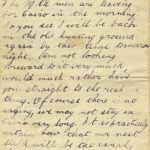 The M Ls men are leaving
for Cairo in the morning
so you see I will be back
in the old hunting ground
again by the time tomorrow
night, Am not looking
forward to it very much
would much rather have
gone straight to the real
thing. Of course there is no
saying we may not stay in
Cairo very long. It is practically
certain how that our next
will be the canal,